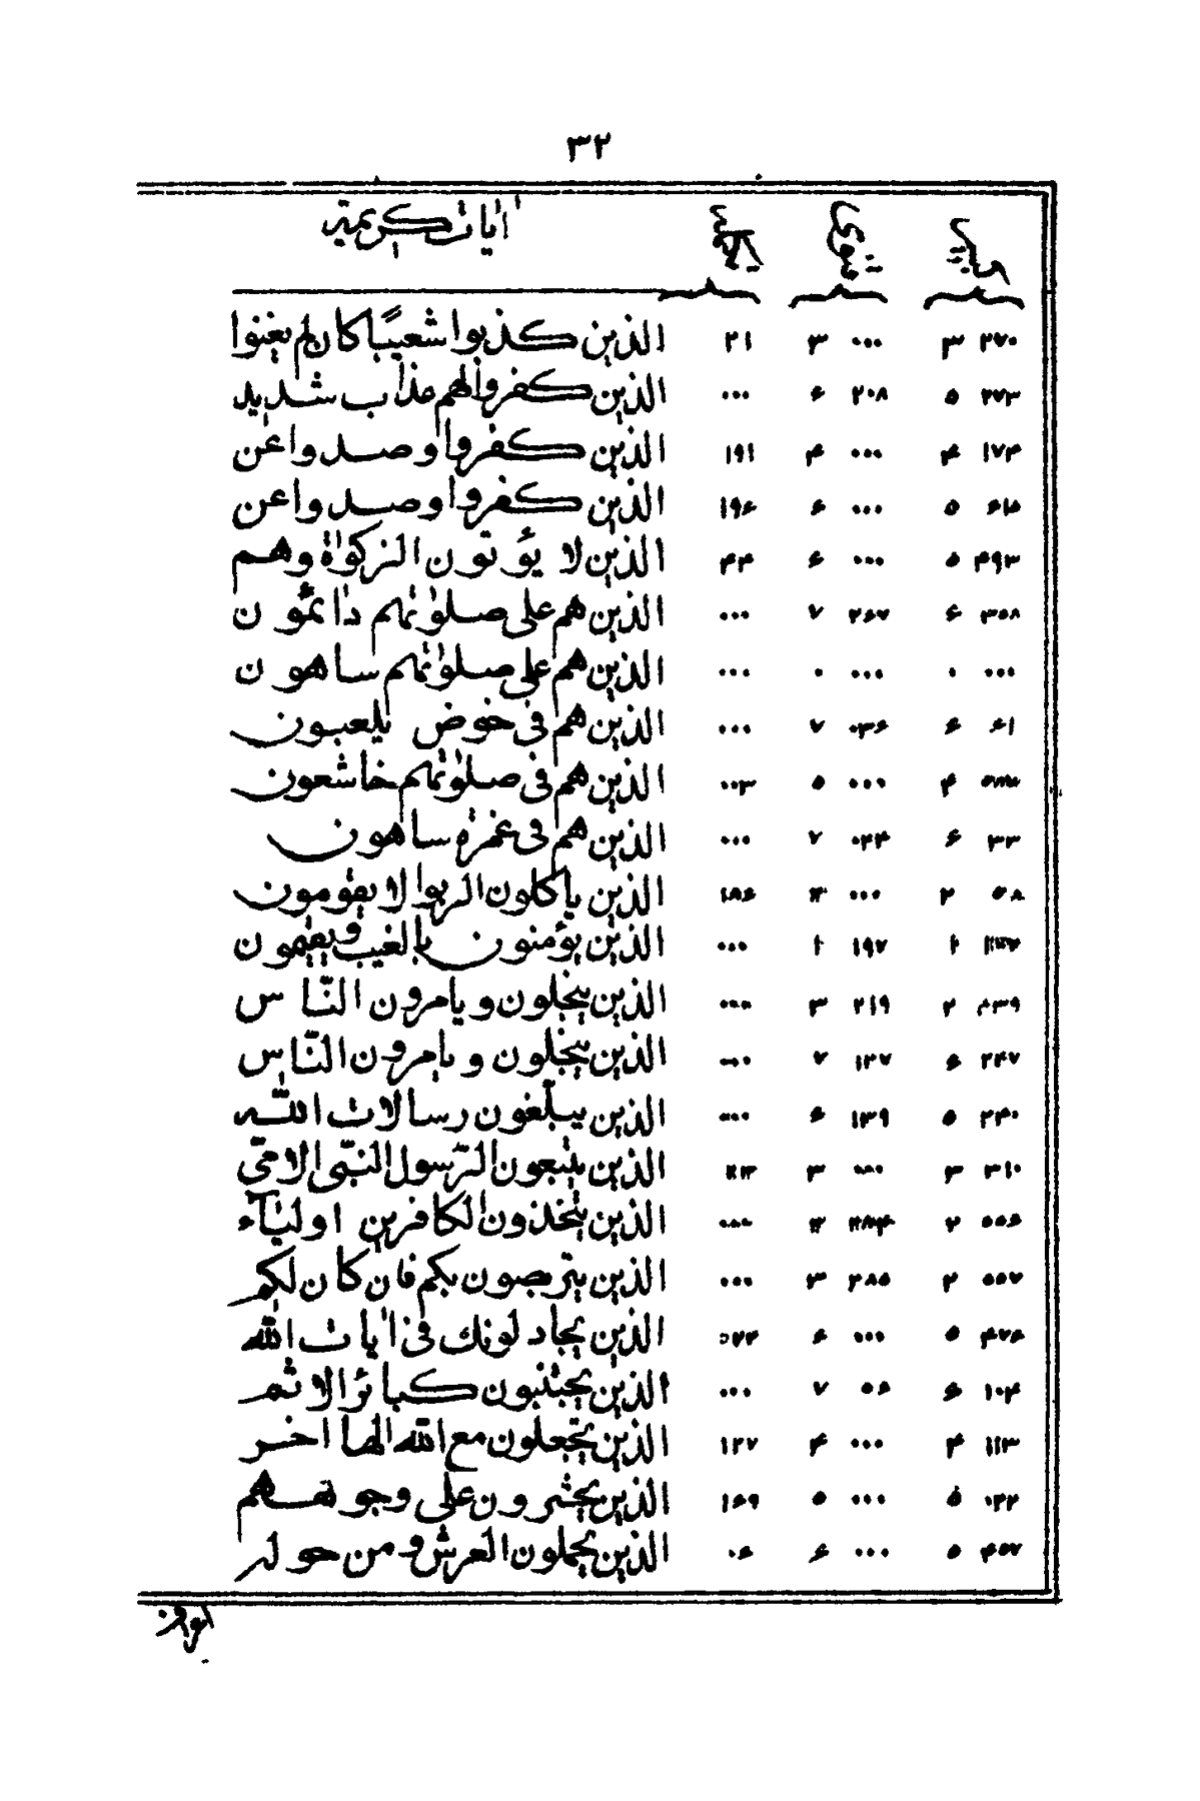 ٣٢
اٰيات كريمة
٢٧٠ ٣ ٠٠٠ ٣ ٢١ الذين كذبوا شعيبًا كان لم يغنوا
٢٧٣ ٥ ٢٠٨ ۶ ٠٠٠ الذين كفروا لهم عذاب شديد
١٧۴ ۴ ٠٠٠ ۴ ١٩١ الذين كفروا وصدوا عن
٥ ٠٠٠ ۶ ١٩۶ الذين كفروا وصدوا عن
۴٩٣ ٥ ٠٠٠ ۶ ۴۴ الذين لا يؤتون الزكوٰة وهم
٣٥٨ ۶ ٢۶٧ ٧ ٠٠٠ الذين هم على صلوٰتهم دائمون
٠٠٠ ٠ ٠٠٠ ٠ ٠٠٠ الذين هم على صلوٰتهم ساهون
۶١ ۶ ٠٣۶ ٧ ٠٠٠ الذين هم فى خوض يلعبون
۴ ٠٠٠ ٥ ٠٠٣ الذين هم فى صلوٰتهم خاشعون
٣٣ ۶ ٠٢۴ ٧ ٠٠٠ الذين هم فى غمرة ساهون
٥٨ ٢ ٠٠٠ ٣ ١٨۶ الذين ياكلون الربوا لا يقومون
١ ١٩٧ ١ ٠٠٠ الذين يؤمنون بالغيب ويقيمون
٢ ٢١٩ ٣ ٠٠٠ الذين يبخلون ويامرون النّاس
٢۴٧ ۶ ١٣٧ ٧ ٠٠٠ الذين يبخلون ويامرون النّاس
٢۴٠ ٥ ١٣٩ ۶ ٠٠٠ الذين يبلّغون رسالات اللّه
٣١٠ ٣ ٠٠٠ ٣ الذين يتبعون الرّسول النبّى الامّى
٥٥۶ ٢ ٢٨۴ ٣ ٠٠٠ الذين يتخذون الكافرين اولياۤء
٥٥٧ ٢ ٢٨٥ ٣ ٠٠٠ الذين يتربصون بكم فان كان لكم
۴٧۶ ٥ ٠٠٠ ۶ الذين يجادلونك فى اٰيات اللّه
١٠۴ ۶ ٥۶ ٧ ٠٠٠ الذين يجتنبون كبائر الاثم
١١٣ ۴ ٠٠٠ ۴ ١٢٧ الذين يجعلون مع اللّه الها اخر
٠٢٢ ٥ ٠٠٠ ٥ ١۶٩ الذين يحشرون على وجوههم
۴٥٧ ٥ ٠٠٠ ۶ ٠۶ الذين يحملون العرش ومن حوله